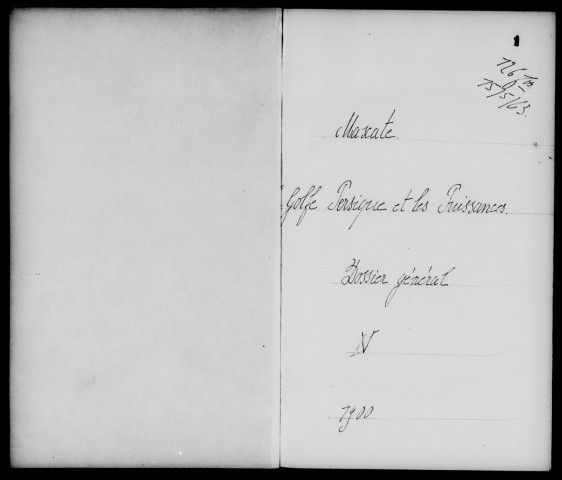 1
126 fos
15/5/63.
Mascate.
Golfe Persique et les Puissances.
Dossier général
IV
1900